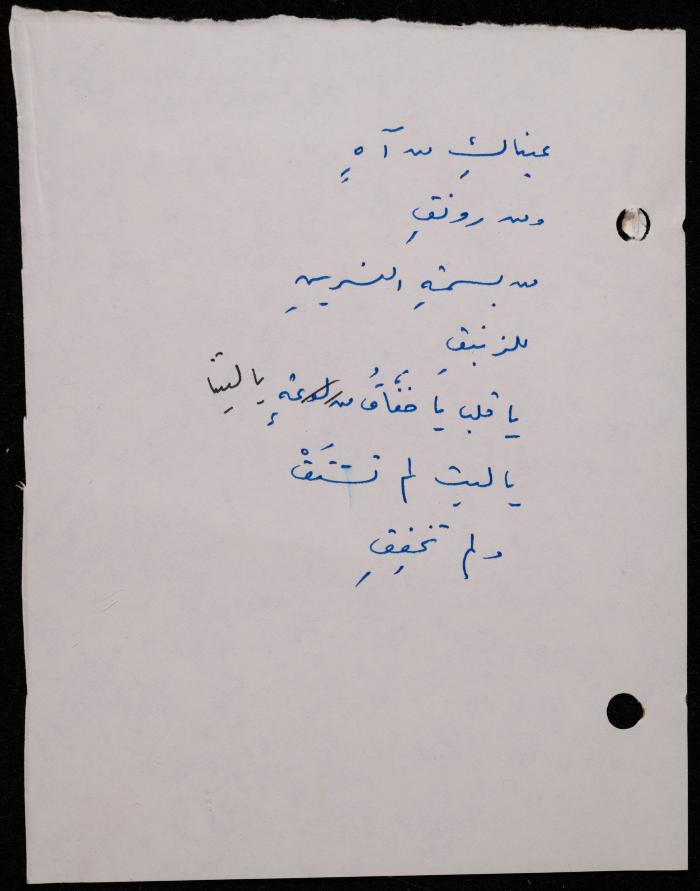 عيناكِ من آهٍ
ومن رونقِ
من بسمةِ النسرينِ
للزنبقِ
يا قلب يا خفّاقُ من لوعةٍ يا ليتنا
يا ليت لم نشتَقْ
ولم تخفِقِ